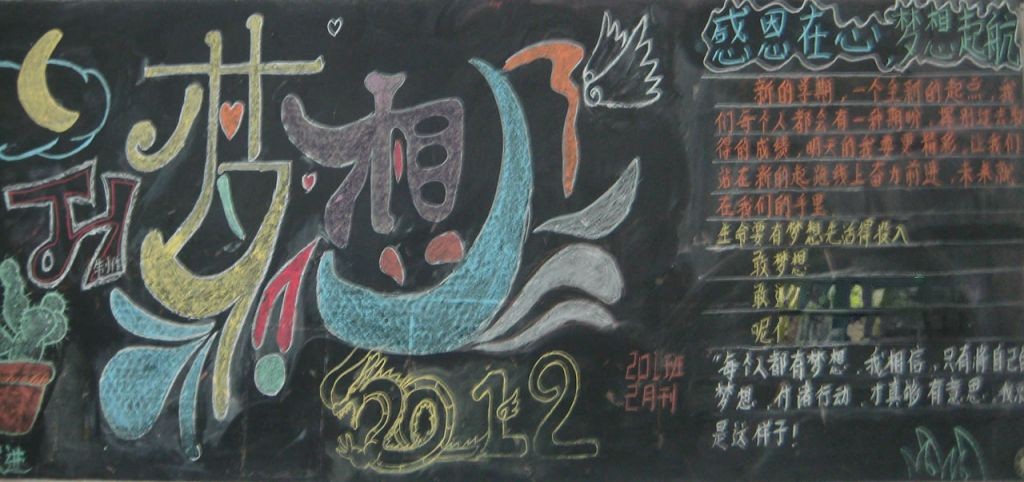 梦想
2012
201班
2月刊
进
感恩在心 梦想起航
新的学期，一个全新的起点，我
们每个人都会有一种期盼，告别过去取
得的成绩，明天的我要更精彩，让我们
站在新的起跑线上奋力前进，未来就
在我们的手里
生命要有梦想走活得投入
我梦想
我
呢
"每个人都有梦想，我相信，只有将自己的
梦想，付诸行动，才真的有意思，我
是这样子！